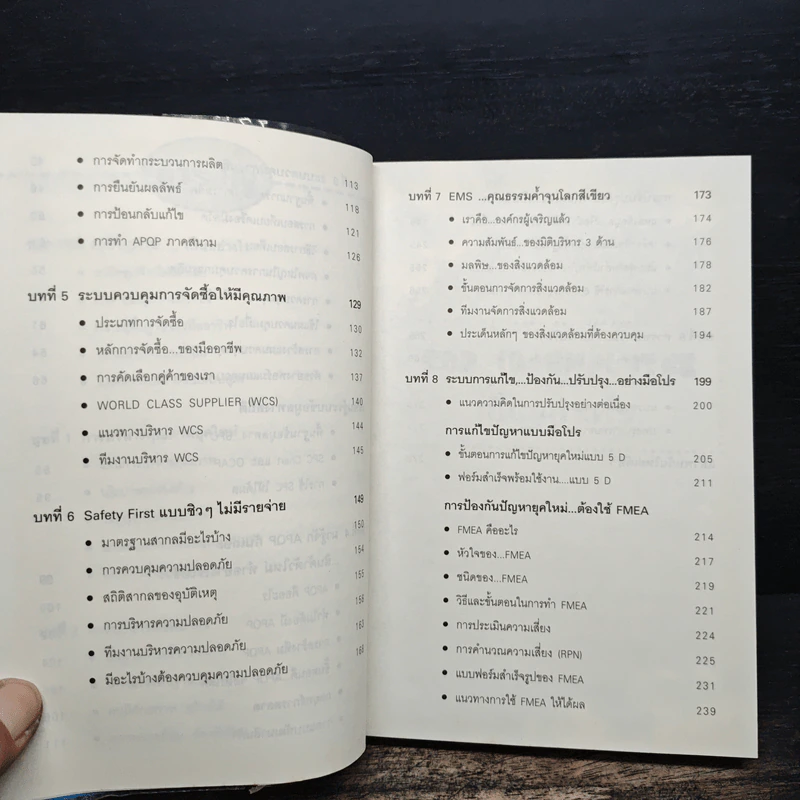 • การจัดทำกระบวนการผลิต 113
• การยืนยันผลลัพธ์ 118
• การป้อนกลับแก้ไข 121
• การทำ APQP ภาคสนาม 126
บทที่ 5 ระบบควบคุมการจัดซื้อให้มีคุณภาพ 129
• ประเภทการจัดซื้อ 130
• หลักการจัดซื้อ...ของมืออาชีพ 132
• การคัดเลือกคู่ค้าของเรา 137
• WORLD CLASS SUPPLIER (WCS) 140
• แนวทางบริหาร WCS 144
• ทีมงานบริหาร WCS 145
บทที่ 6 Safety First แบบชิวๆ ไม่มีรายจ่าย 149
• มาตรฐานสากลมีอะไรบ้าง 150
• การควบคุมความปลอดภัย 154
• สถิติสากลของอุบัติเหตุ 155
• การบริหารความปลอดภัย 156
• ทีมงานบริหารความปลอดภัย 163
• มีอะไรบ้างต้องควบคุมความปลอดภัย 168
บทที่ 7 EMS ...คุณธรรมค้ำจุนโลกสีเขียว 173
• เราคือ...องค์กรผู้เจริญแล้ว 174
• ความสัมพันธ์...ของมิติบริหาร 3 ด้าน 176
• มลพิษ...ของสิ่งแวดล้อม 178
• ขั้นตอนการจัดการสิ่งแวดล้อม 182
• ทีมงานจัดการสิ่งแวดล้อม 187
• ประเด็นหลักๆ ของสิ่งแวดล้อมที่ต้องควบคุม 194
บทที่ 8 ระบบการแก้ไข,...ป้องกัน...ปรับปรุง...อย่างมือโปร 199
• แนวความคิดในการปรับปรุงอย่างต่อเนื่อง 200
การแก้ไขปัญหาแบบมือโปร
• ขั้นตอนการแก้ไขปัญหายุคใหม่แบบ 5 D 205
• ฟอร์มสำเร็จพร้อมใช้งาน....แบบ 5 D 211
การป้องกันปัญหายุคใหม่...ต้องใช้ FMEA
• FMEA คืออะไร 214
• หัวใจของ...FMEA 217
• ชนิดของ...FMEA 219
• วิธีและขั้นตอนในการทำ FMEA 221
• การประเมินความเสี่ยง 224
• การคำนวณความเสี่ยง (RPN) 225
• แบบฟอร์มสำเร็จรูปของ FMEA 231
• แนวทางการใช้ FMEA ให้ได้ผล 239